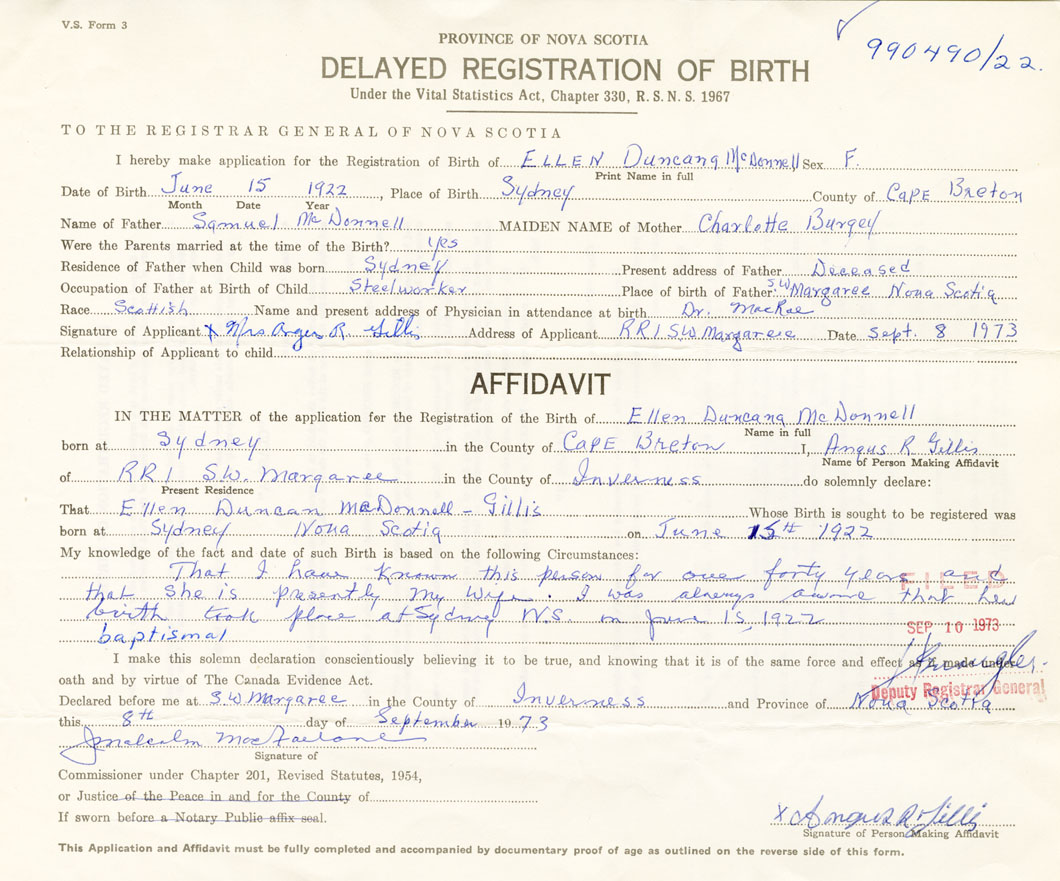 V.S. Form 3
990490/22.
PROVINCE OF NOVA SCOTIA
DELAYED REGISTRATION OF BIRTH
Under the Vital Statistics Act, Chapter 330, R. S. N. S. 1967
TO THE REGISTRAR GENERAL OF NOVA SCOTIA
I hereby make application for the Registration of Birth of ELLEN Duncana McDonnell Sex F.
Print Name in full
Date of Birth June 15 1922, Place of Birth Sydney County of CAPE Breton
Month Date Year
Name of Father Samuel McDonnell MAIDEN NAME of Mother Charlotte Burgey
Were the Parents married at the time of the Birth? Yes
Residence of Father when Child was born Sydney Present address of Father Deceased
Occupation of Father at Birth of Child Steelworker Place of birth of Father S.W Margaree Nova Scotia
Race Scottish Name and present address of Physician in attendance at birth Dr. MacRae
Signature of Applicant X Mrs Anges R. Gillis Address of Applicant RR1 SW Margaree Date Sept. 8 1973
Relationship of Applicant to child
AFFIDAVIT
IN THE MATTER of the application for the Registration of the Birth of Ellen Duncana McDonnell
Name in full
born at Sydney in the County of CAPE Breton I, Angus R Gillis
Name of Person Making Affidavit
of RR1 S.W. Margaree in the County of Inverness do solemnly declare:
Present Residence
That Ellen Duncan McDonnell - Gillis Whose Birth is sought to be registered was
born at Sydney Nova Scotia on June 15th 1922
My knowledge of the fact and date of such Birth is based on the following Circumstances:
That I have known this person for over forty years and
FILED
that she is presently my wife. I was always aware that her
birth took place at Sydney N.S. on June 15, 1922
SEP 10 1973
baptismal
I make this solemn declaration conscientiously believing it to be true, and knowing that it is of the same force and effect as if made under
oath and by virtue of The Canada Evidence Act.
Deputy Registrar General
Declared before me at S.W Margaree in the County of Inverness and Province of Nova Scotia
this 8th day of September 1973
J Malcolm MacFarlane
Signature of
Commissioner under Chapter 201, Revised Statutes, 1954,
or Justice of the Peace in and for the County of
If sworn before a Notary Public affix seal.
X Angus R Gillis
Signature of Person Making Affidavit
This Application and Affidavit must be fully completed and accompanied by documentary proof of age as outlined on the reverse side of this form.